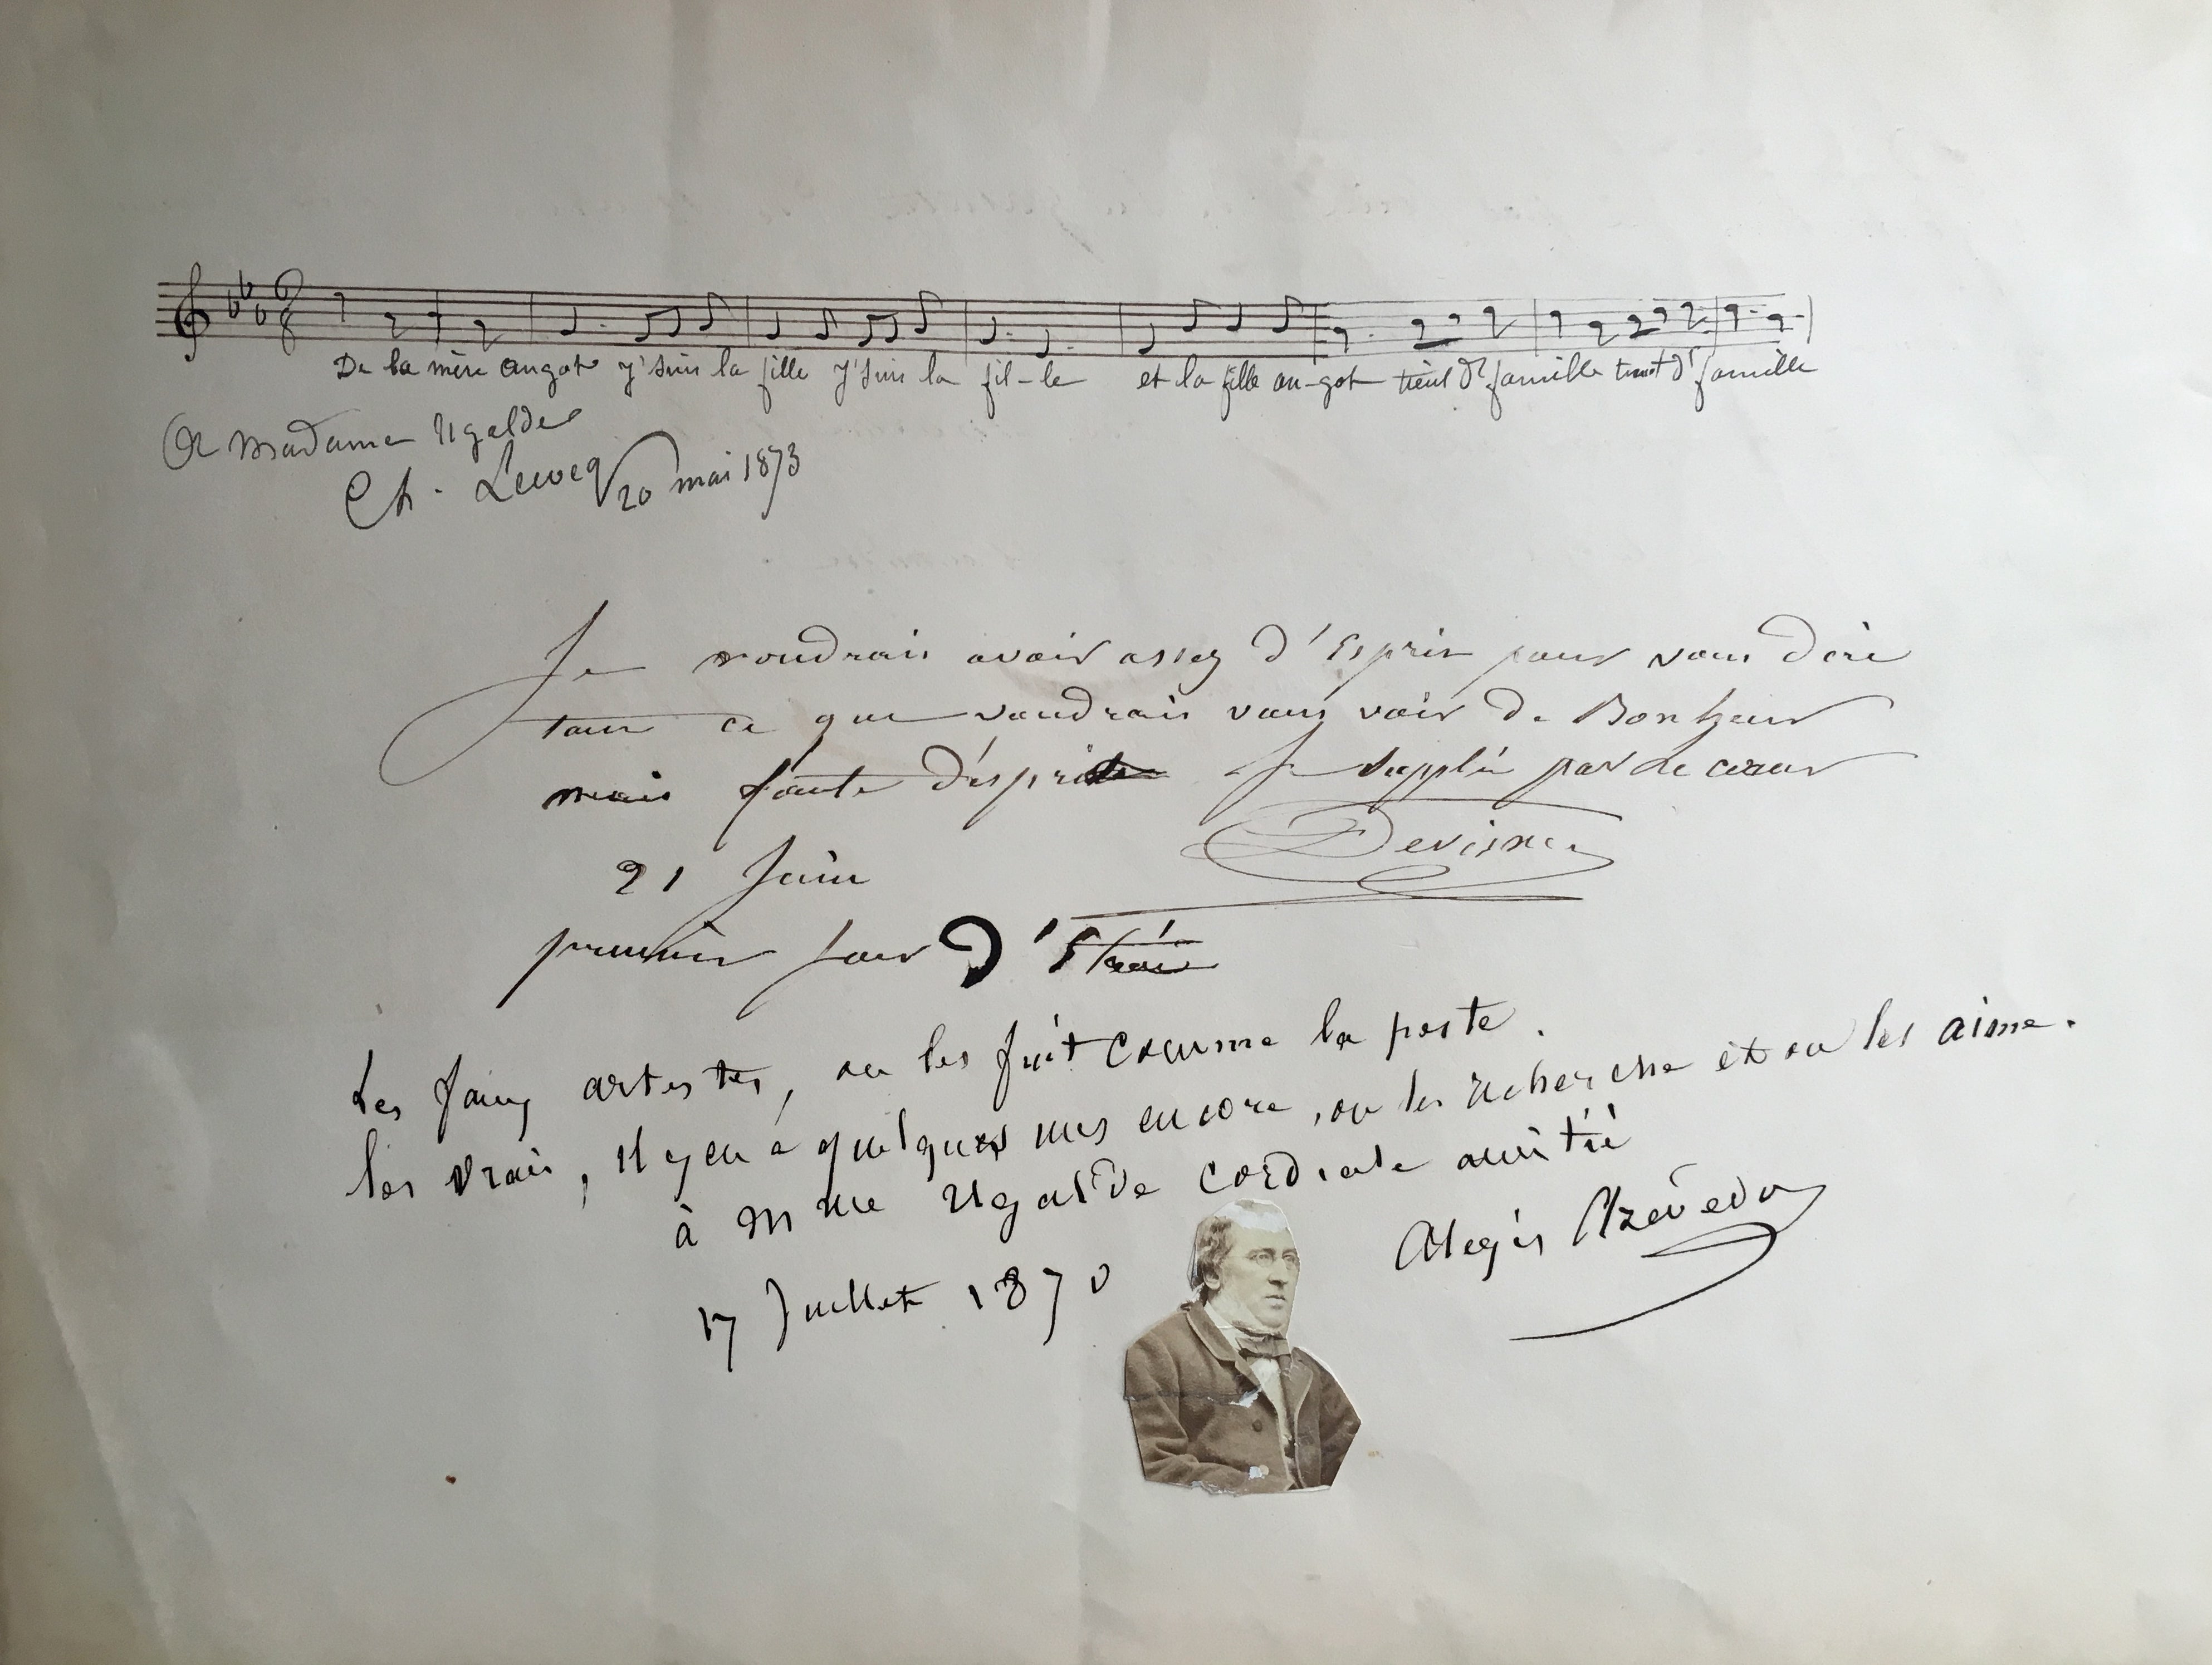 De la mère angot j'suis la fille j'suis la fil-le et la fille an-got tient d'famille tient d'famille
A Madame Ugalde
Ch. Lecocq 20 mai 1873
Je voudrais avoir assez d'Esprit pour vous dire
tout ce que voudrais vous voir de Bonheur
mais faute d'esprit Je supplée par Le cœur
Devisme
21 Juin
premier Jour D'Eté
Les faux artistes, on les fuit comme la peste.
les vrais, il y en a quelques uns encore, on les recherche et on les aime.
à Mme Ugalde cordiale amitié
Alexis Azévedo
17 Juillet 1870